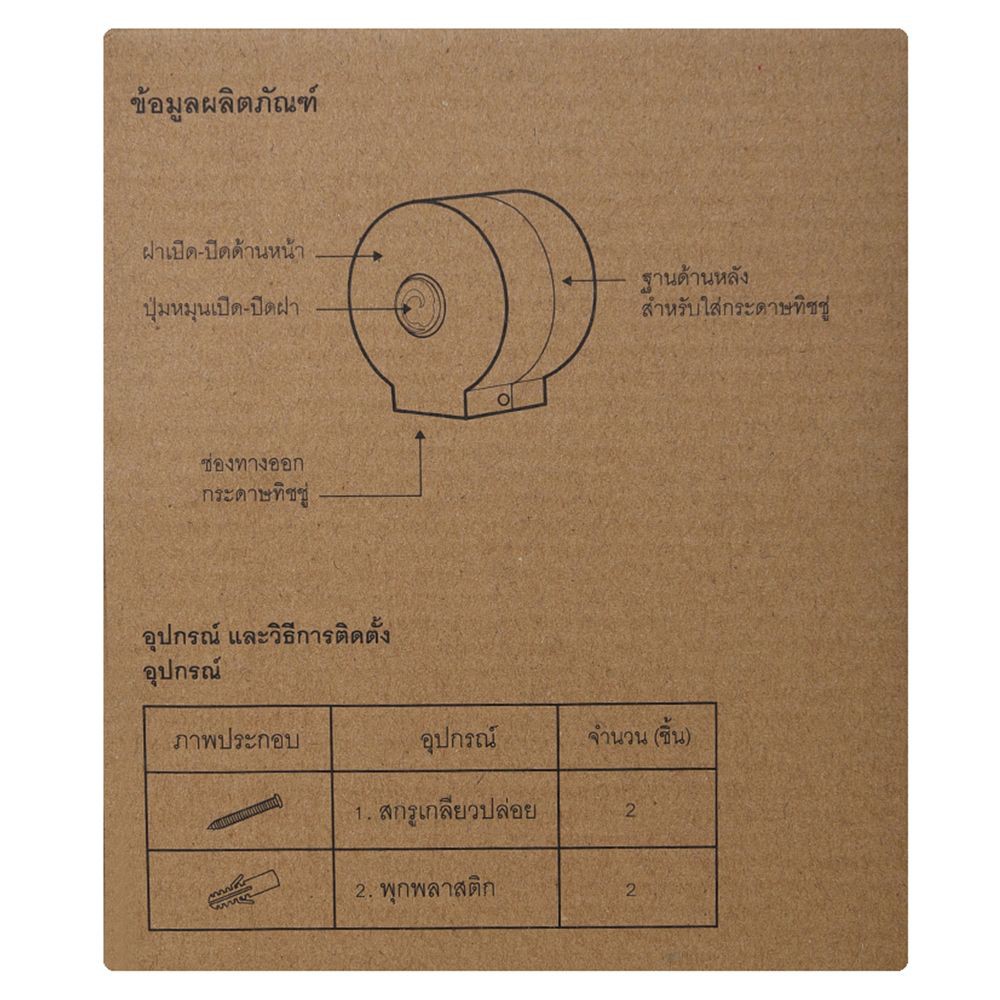 ข้อมูลผลิตภัณฑ์
ฝาเปิด-ปิดด้านหน้า
ปุ่มหมุนเปิด-ปิดฝา
ฐานด้านหลัง
สำหรับใส่กระดาษทิชชู่
ช่องทางออก
กระดาษทิชชู่
อุปกรณ์ และวิธีการติดตั้ง
อุปกรณ์
ภาพประกอบ อุปกรณ์ จำนวน (ชิ้น)
1. สกรูเกลียวปล่อย 2
2. พุกพลาสติก 2